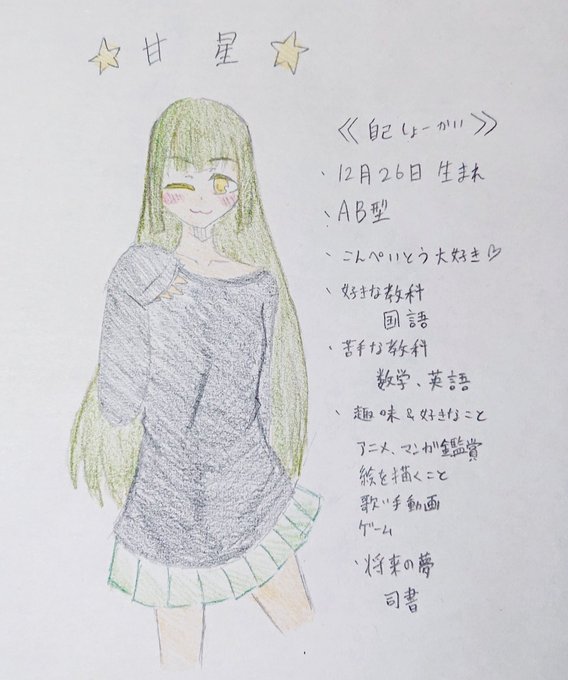 甘星
《自己しょーかい》
、12月26日生まれ
、AB型
、こんぺいとう大好き♡
、好きな教科
国語
、苦手な教科
数学、英語
、趣味&好きなこと
アニメ、マンガ鑑賞
絵を描くこと
歌い手動画
ゲーム
、将来の夢
司書